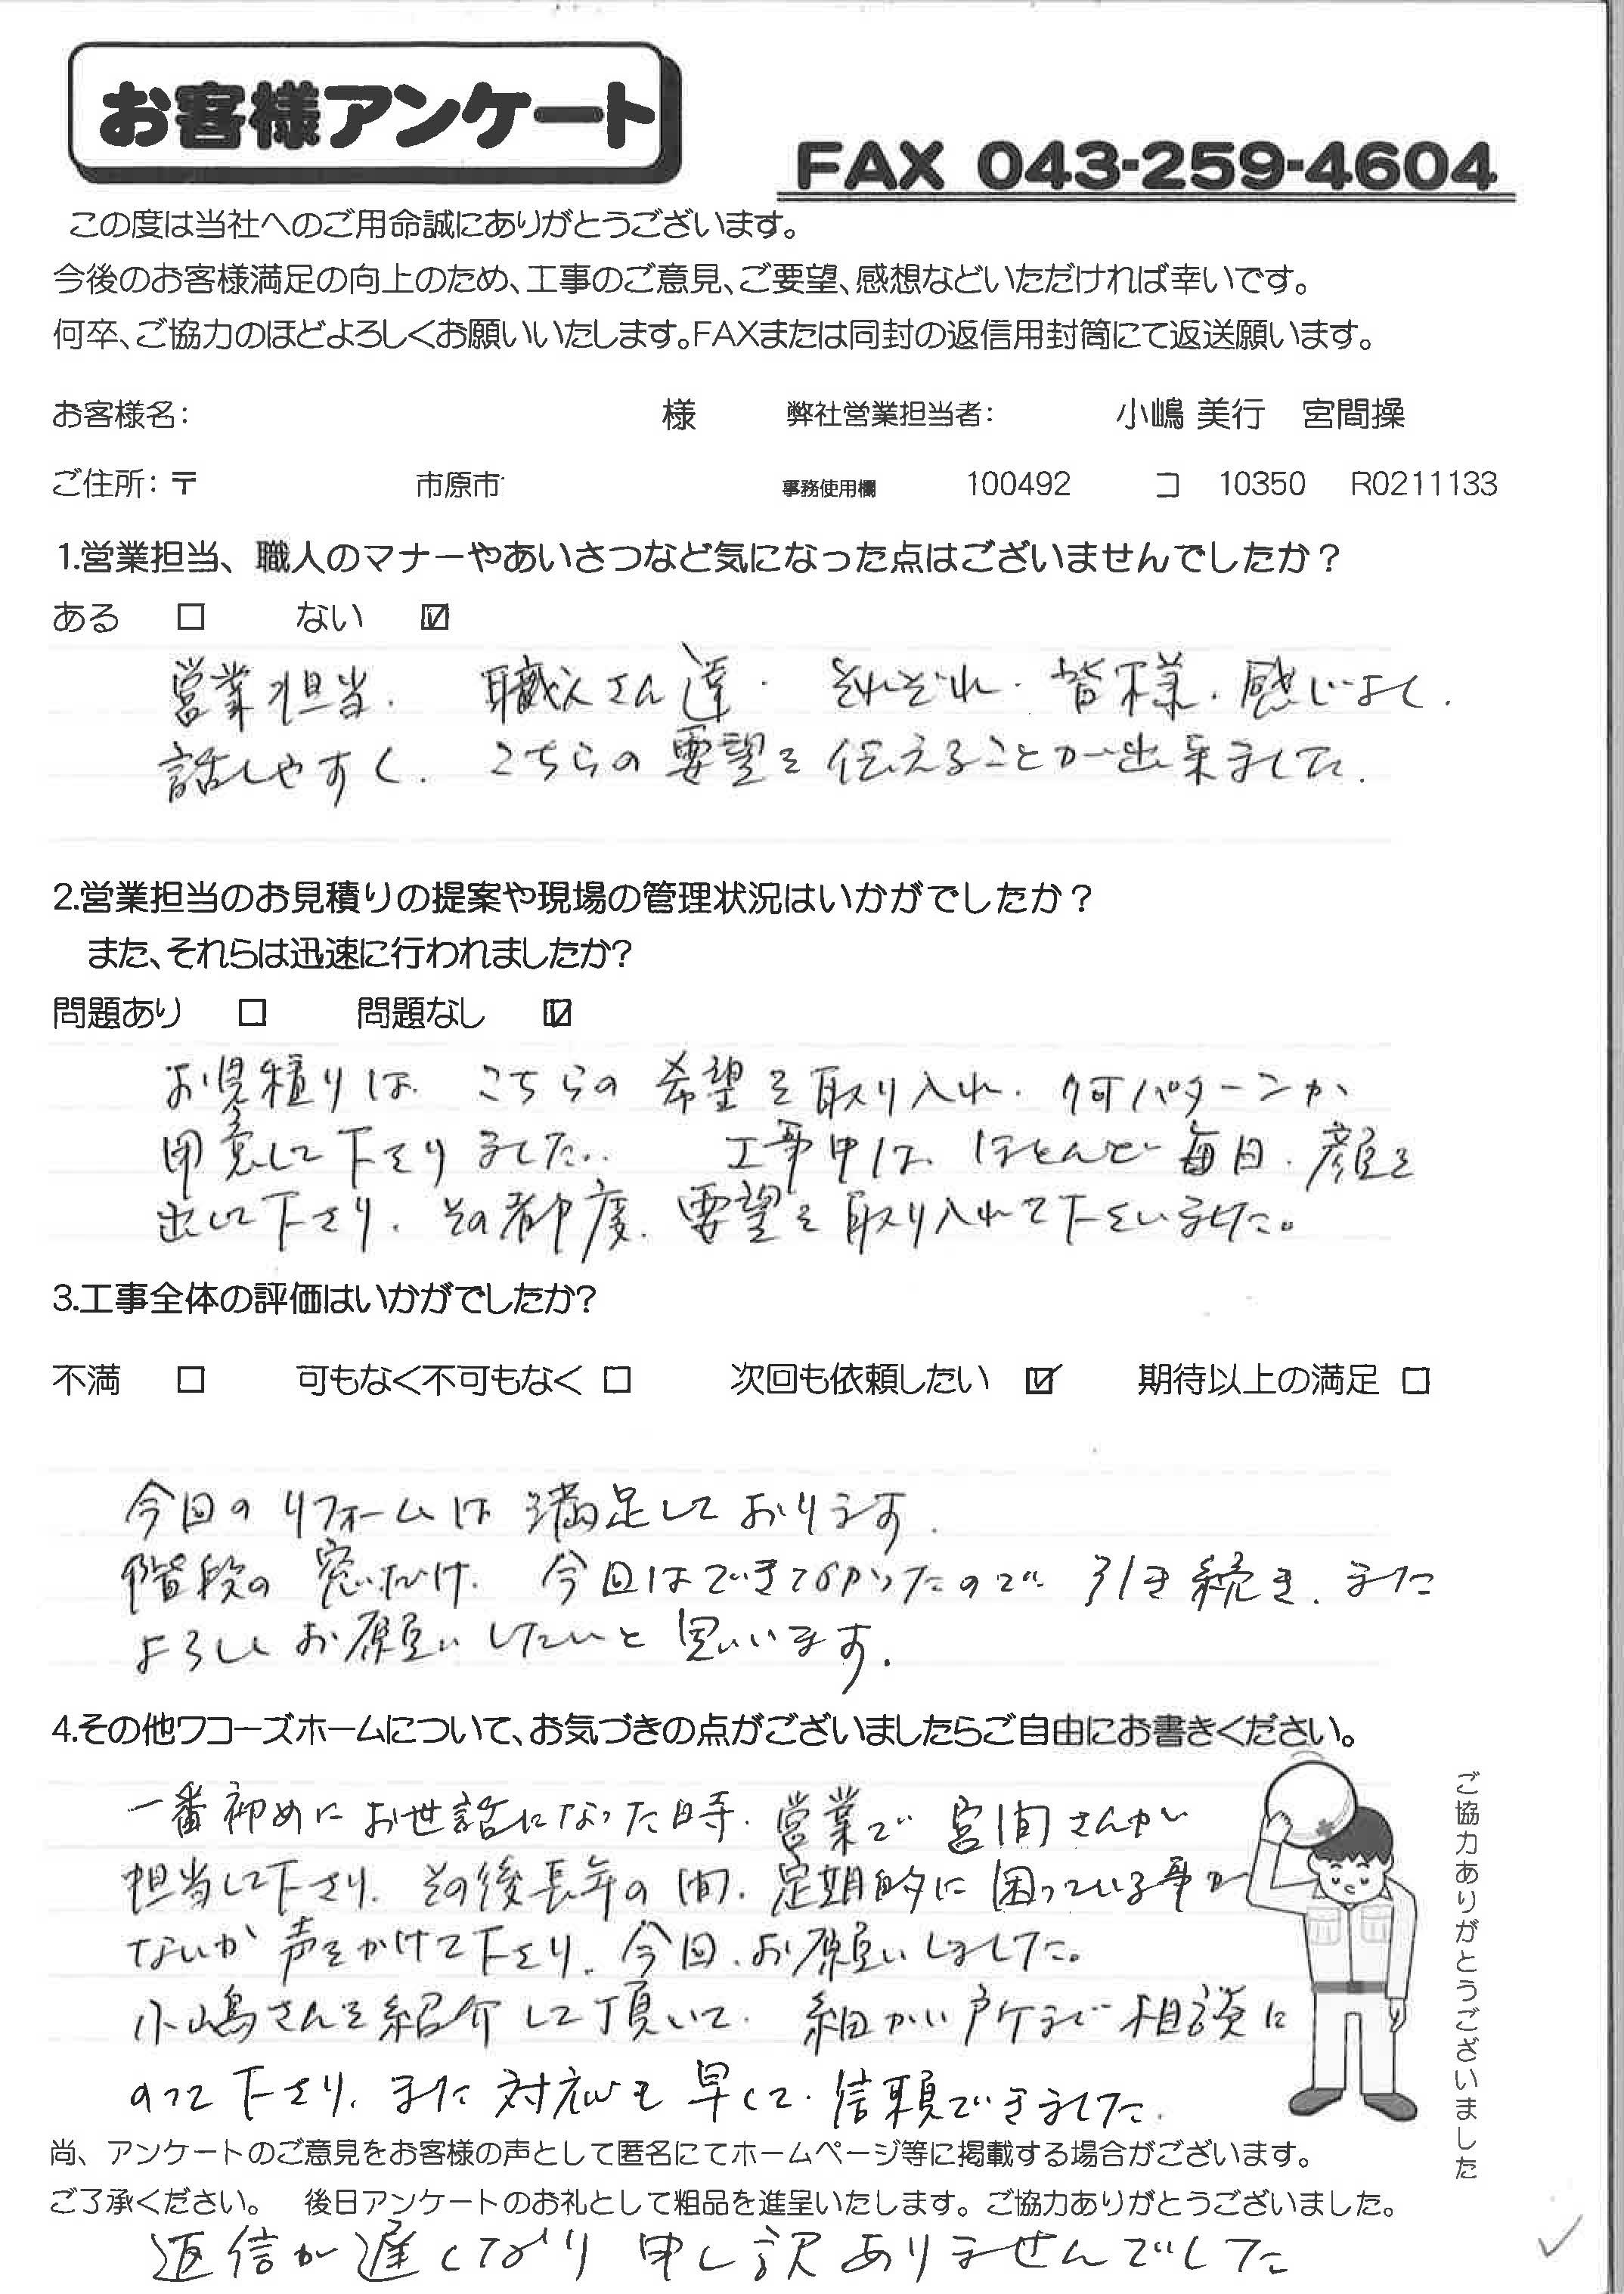 お客様アンケート
FAX 043-259-4604
この度は当社へのご用命誠にありがとうございます。
今後のお客様満足の向上のため、工事のご意見、ご要望、感想などいただければ幸いです。
何卒、ご協力のほどよろしくお願いいたします。FAXまたは同封の返信用封筒にて返送願います。
お客様名: 様 弊社営業担当者: 小嶋 美行 宮間操
ご住所:〒 市原市 事務使用欄 100492 コ 10350 R0211133
1.営業担当、職人のマナーやあいさつなど気になった点はございませんでしたか？
ある □ ない ☑
営業担当. 職人さん達. それぞれ. 皆様. 感じよく.
話しやすく. こちらの要望を伝えることが出来ました.
2.営業担当のお見積りの提案や現場の管理状況はいかがでしたか？
また、それらは迅速に行われましたか?
問題あり □ 問題なし ☑
お見積りは. こちらの希望を取り入れ. 何パターンか
用意して下さりました.. 工事中は. ほとんど毎日. 顔を
出して下さり. その都度. 要望を取り入れて下さいました。
3.工事全体の評価はいかがでしたか?
不満 □ 可もなく不可もなく □ 次回も依頼したい ☑ 期待以上の満足 □
今回のリフォームは満足しております.
階段の窓だけ. 今回はできなかったので. 引き続き. また
よろしくお願いしたいと思います.
4.その他ワコーズホームについて、お気づきの点がございましたらご自由にお書きください。
一番初めにお世話になった時. 営業で宮間さんが
担当して下さり. その後長年の間. 定期的に困っている事が
ないか声をかけて下さり. 今回. お願いしました。
小嶋さんを紹介して頂いて. 細かい所まで相談に
のって下さり. また対応も早くて. 信頼できました.
ご協力ありがとうございました
尚、アンケートのご意見をお客様の声として匿名にてホームページ等に掲載する場合がございます。
ご了承ください。 後日アンケートのお礼として粗品を進呈いたします。ご協力ありがとうございました。
返信が遅くなり申し訳ありませんでした